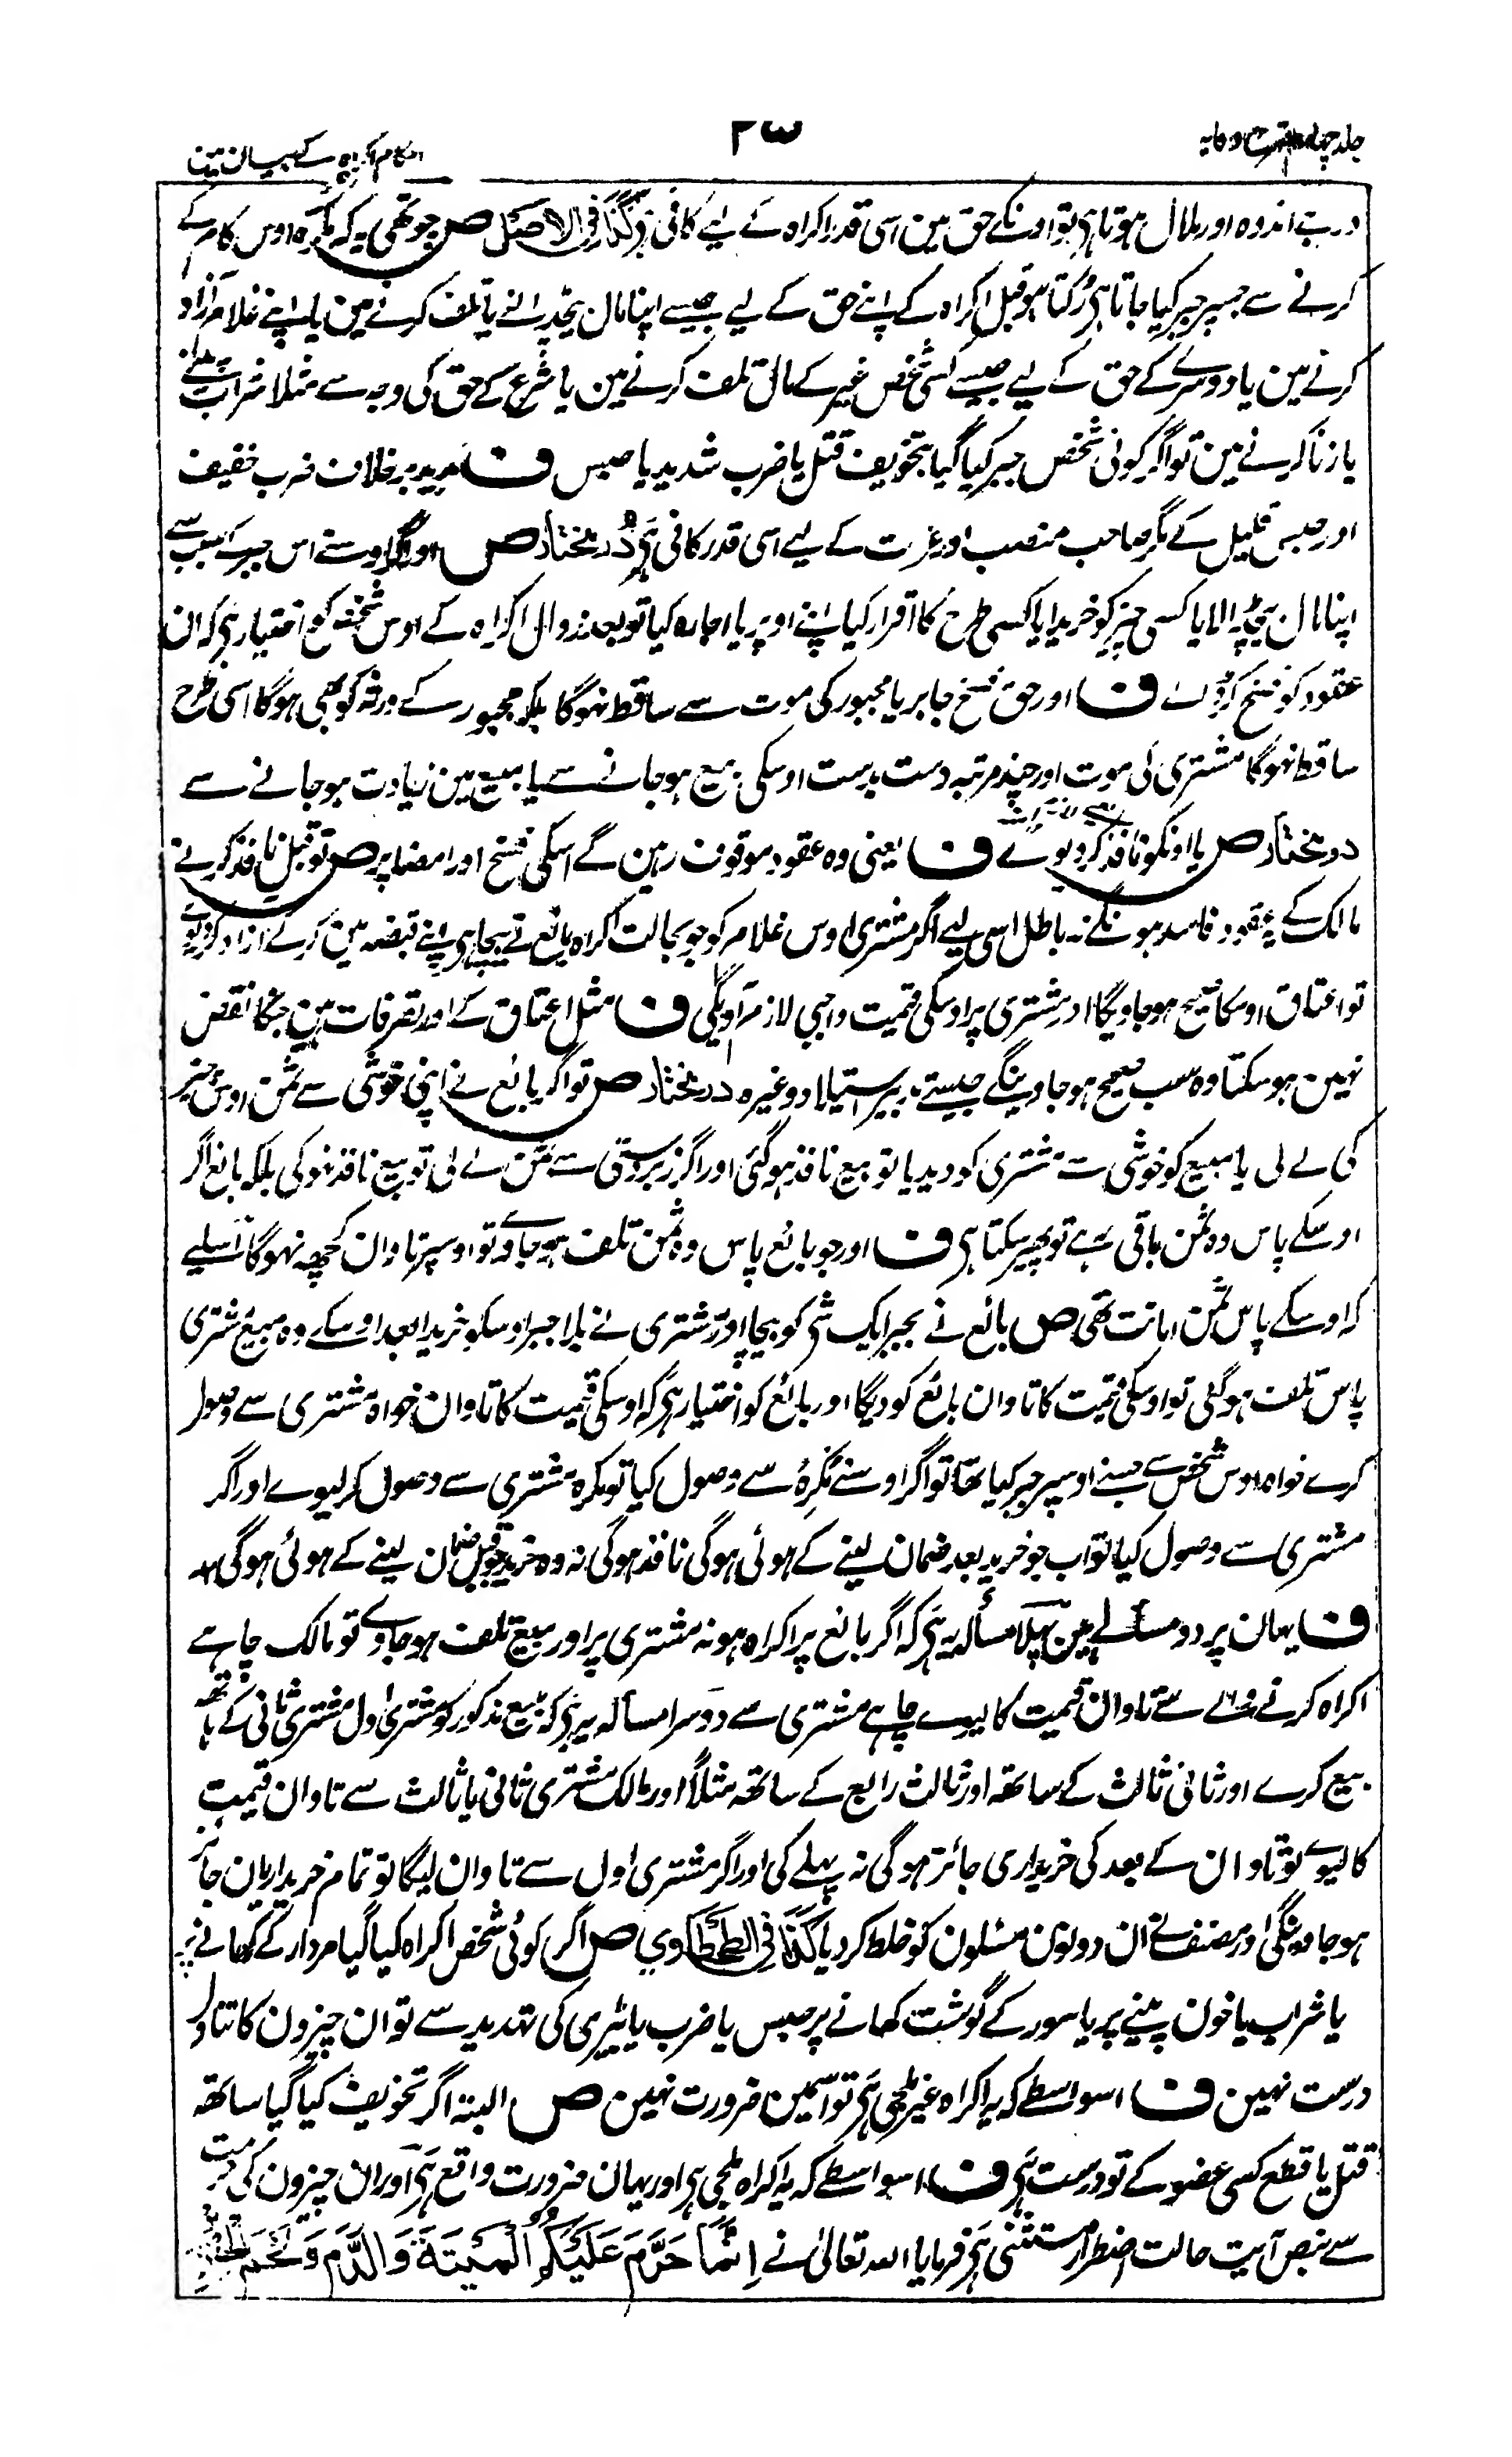 جلد چہارم شرح وقایہ
۳۵
احکام اکراہ کے بیان میں
درجے اندوہ اور ملال ہوتا ہی تو اونکے حق مین اسی قدر اکراہ کے لیے کافی ہی کذا فی الاصل ص چوتھی یہ کہ مکرہ اوس کام کے
کرنے سے جسپر جبر کیا جاتا ہی رُکتا ہو قبل اکراہ کے اپنے حق کے لیے جیسے اپنا مال بیچڈالنے یا تلف کرنے مین یا اپنے غلام آزاد
کرنے مین یا دوسرے کے حق کے لیے جیسے کسی شخص غیر کے مال تلف کرنے مین یا شرع کے حق کی وجہ سے مثلا شراب پینے
یا زنا کرنے مین تو اگر کوئی شخص جبر کیا گیا بتخویف قتل یا ضرب شدید یا حبس ف مدید بر خلاف ضرب خفیف
اور حبس قلیل کے مگر صاحب منصب اور عزت کے لیے اسی قدر کافی ہی درمختار ص اور اگر اوسنے اس جبر کے سبب سے
اپنا مال بیچ ڈالا یا کسی چیز کو خریدا یا کسی طرح کا اقرار کیا اپنے اوپر یا اجارہ کیا تو بعد زوال اکراہ کے اوس شخص کو اختیار ہی کہ ان
عقود کو فسخ کرڈالے ف اور حق فسخ جابر یا مجبور کی موت سے ساقط نہوگا بلکہ مجبور کے ورثہ کو بھی ہوگا اسی طرح
ساقط نہوگا مشتری کی موت اور چند مرتبہ دست بدست اوسکی بیع ہو جانے سے یا مبیع مین زیادت ہو جانے سے
درمختار ص یا اونکو نافذ کردیوے ف یعنی وہ عقود موقوف رہین گے اسکی فسخ اور امضا پر ص تو قبل نافذ کرنے
مالک کے یہ عقود فاسد ہونگے نہ باطل اسی لیے اگر مشتری اوس غلام کو جو بحالت اکراہ بائع نے بیچا ہی اپنے قبضہ مین کرکے آزاد کردیوے
تو اعتاق اوسکا صحیح ہو جاویگا اور مشتری پر اوسکی قیمت واجبی لازم آویگی ف مثل اعتاق کے اور تصرفات ہین جنکا نقض
نہین ہو سکتا وہ سب صحیح ہو جاوینگے جیسے تدبیر استیلاد وغیرہ درمختار ص تو اگر بائع نے اپنی خوشی سے ثمن اوس چیز
کی لے لی یا مبیع کو خوشی سے مشتری کو دیدیا تو بیع نافذ ہوگئی اور اگر زبردستی سے ثمن لے لی تو بیع نافذ نہوگی بلکہ بائع اگر
اوسکے پاس وہ ثمن باقی ہے تو پھیر سکتا ہی ف اور جو بائع پاس وہ ثمن تلف ہو جاوے تو اوسپر تاوان کچھ نہوگا اسلیے
کہ اوسکے پاس ثمن امانت تھی ص بائع نے بجبر ایک شی کو بیچا اور مشتری نے بلا جبر اوسکو خریدا بعد اوسکے وہ مبیع مشتری
پاس تلف ہوگئی تو اوسکی قیمت کا تاوان بائع کو دیگا اور بائع کو اختیار ہی کہ اوسکی قیمت کا تاوان خواہ مشتری سے وصول
کرے خواہ اوس شخص سے جسنے اوسپر جبر کیا تھا تو اگر اوسنے مُکرِہ سے وصول کیا تو مکرہ مشتری سے وصول کرلیوے اور اگر
مشتری سے وصول کیا تو اب جو خرید بعد ضمان لینے کے ہوئی ہوگی نافذ ہوگی نہ وہ خرید جو قبل ضمان لینے کے ہوئی ہوگی
ف یہان پر دو مسألے ہین پہلا مسألہ یہ ہی کہ اگر بائع پر اکراہ ہو نہ مشتری پر اور مبیع تلف ہو جاوے تو مالک چاہے
اکراہ کرنے والے سے تاوان قیمت کا لیوے چاہے مشتری سے دوسرا مسألہ یہ ہی کہ مبیع مذکور کو مشتری اول مشتری ثانی کے ہاتھ
بیع کرے اور ثانی ثالث کے ساتھ اور ثالث رابع کے ساتھ مثلاً اور مالک مشتری ثانی یا ثالث سے تاوان قیمت
کا لیوے تو تاوان کے بعد کی خریداری جائز ہوگی نہ پہلے کی اور اگر مشتری اول سے تاوان لیگا تو تمام خریداریان جائز
ہو جاوینگی اور مصنف نے ان دونون مسئلون کو خلط کردیا کذا فی الطحطاوی ص اگر کوئی شخص اکراہ کیا گیا مردار کے کھانے پر
یا شراب یا خون پینے پر یا سور کے گوشت کھانے پر حبس یا ضرب یا بیڑی کی تہدید سے تو ان چیزون کا تناول
درست نہین ف اسواسطے کہ یہ اکراہ غیر ملجی ہی تو اسمین ضرورت نہین ص البتہ اگر تخویف کیا گیا ساتھ
قتل یا قطع کسی عضو کے تو درست ہی ف اسواسطے کہ یہ اکراہ ملجی ہی اور یہان ضرورت واقع ہی اور ان چیزون کی حرمت
سے بنص آیت حالت اضطرار مستثنی ہی فرمایا اللہ تعالیٰ نے اِنَّمَا حَرَّمَ عَلَيْكُمُ الْمَيْتَةَ وَالدَّمَ وَلَحْمَ الْخِنْزِيرِ